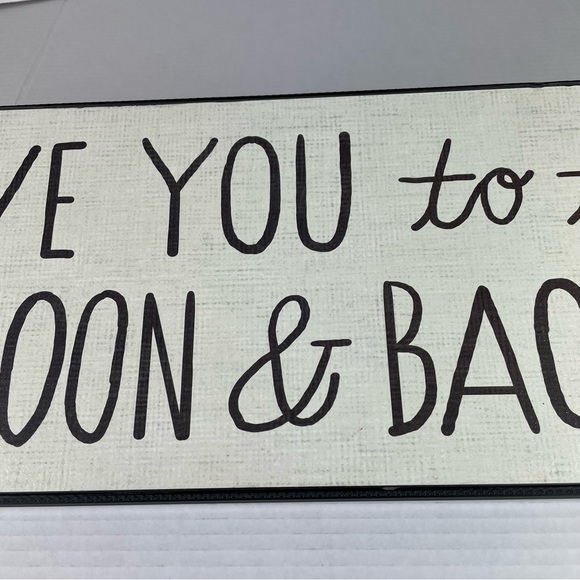 VE YOU to t
OON & BAC